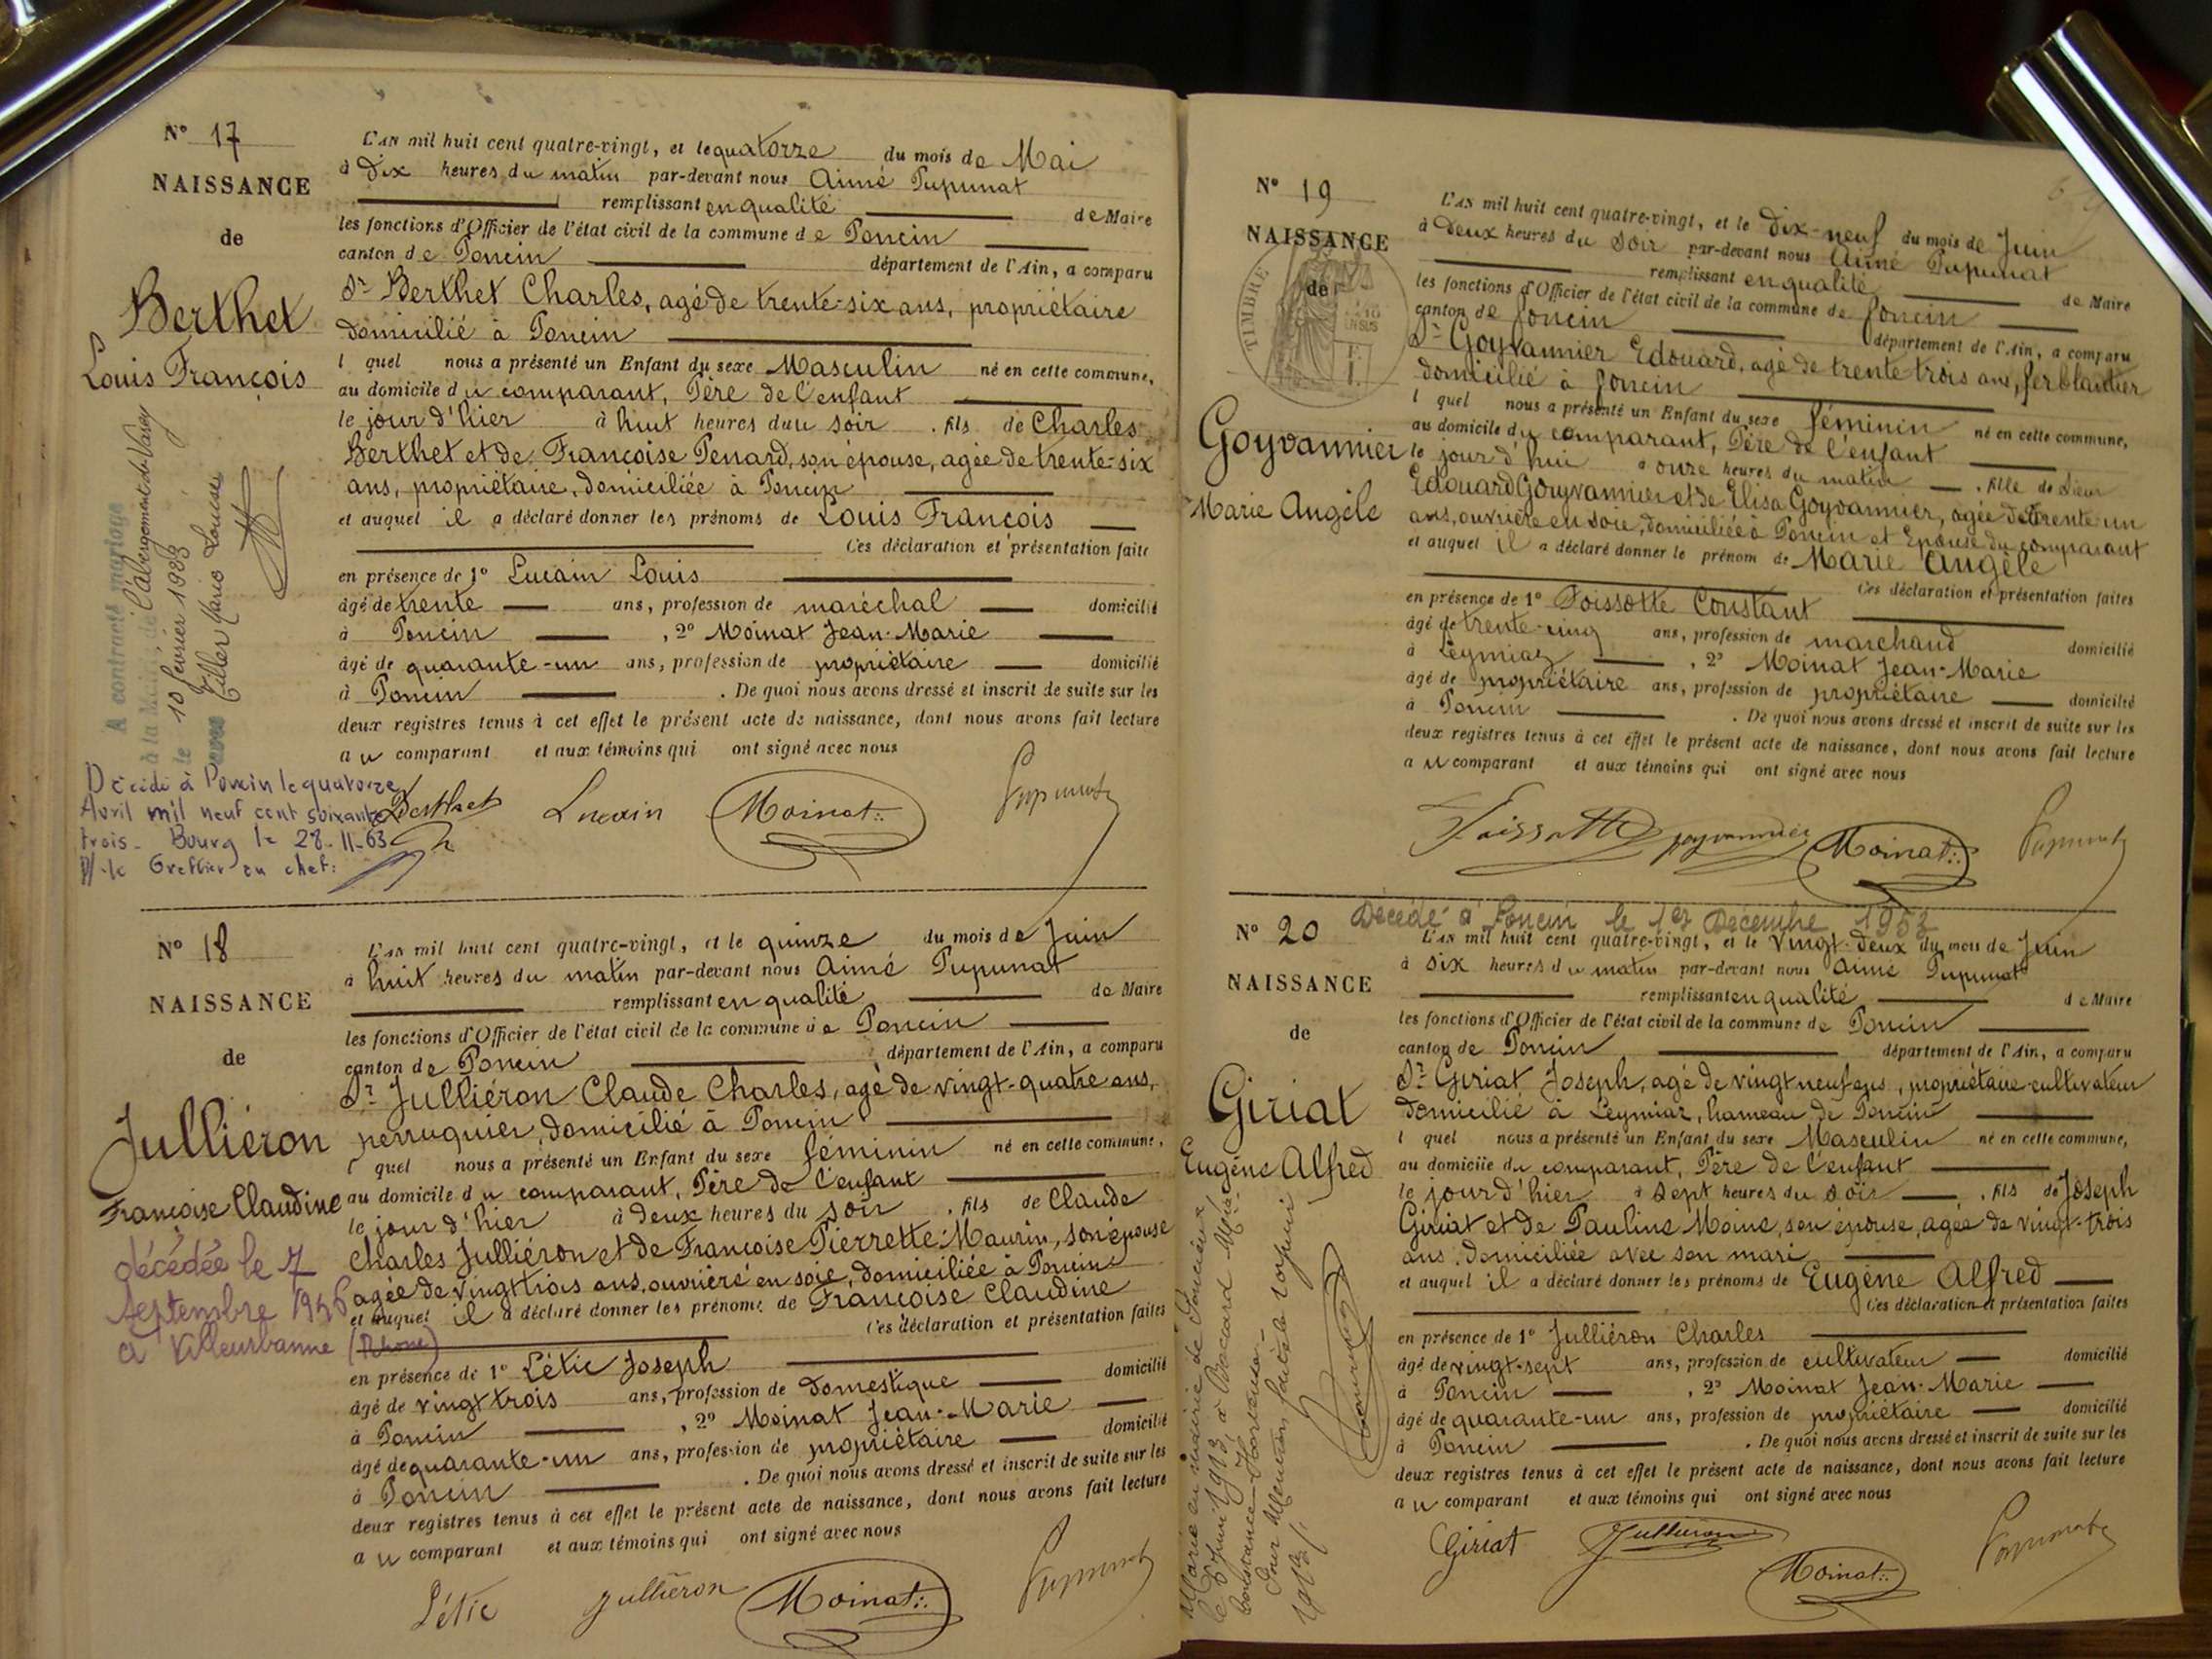 N° 17
NAISSANCE
de
Berthet
Louis François
L'AN mil huit cent quatre-vingt, et le quatorze du mois de Mai
à Dix heures du matin par-devant nous Aimé Pupunat
remplissant en qualité de Maire
les fonctions d'Officier de l'état civil de la commune de Poncin
canton de Poncin département de l'Ain, a comparu
Sr Berthet Charles, agé de trente-six ans, propriétaire
domicilié à Poncin
l quel nous a présenté un Enfant du sexe Masculin né en cette commune,
au domicile du comparant, Père de l'enfant
le jour d'hier à huit heures du soir . fils de Charles
Berthet et de Françoise Penard, son épouse, agée de trente-six
ans, propriétaire, domiciliée à Poncin
et auquel il a déclaré donner les prénoms de Louis François
Ces déclaration et présentation faite
en présence de 1° Lucain Louis
âgé de trente ans, profession de maréchal domicilié
à Poncin , 2° Moinat Jean-Marie
âgé de quarante-un ans, profession de propriétaire domicilié
à Poncin . De quoi nous avons dressé et inscrit de suite sur les
deux registres tenus à cet effet le présent acte de naissance, dont nous avons fait lecture
au comparant et aux témoins qui ont signé avec nous
Berthet Lucain Moinat Pupunat
A contracté mariage
à la Mairie de l'Abergement-de-Varey
le 10 février 1983
avec Tiller Marie Louise
Décédé à Poncin le quatorze
Avril mil neuf cent soixante
trois - Bourg le 28-11-63
P/ le Greffier en chef:
N° 18
NAISSANCE
de
Julliéron
Françoise Claudine
L'AN mil huit cent quatre-vingt, et le quinze du mois de Juin
à huit heures du matin par-devant nous Aimé Pupunat
remplissant en qualité de Maire
les fonctions d'Officier de l'état civil de la commune de Poncin
canton de Poncin département de l'Ain, a comparu
Sr Julliéron Claude Charles, agé de vingt-quatre ans,
perruquier, domicilié à Poncin
l quel nous a présenté un Enfant du sexe féminin né en cette commune,
au domicile du comparant, Père de l'enfant
le jour d'hier à deux heures du soir . fils de Claude
Charles Julliéron et de Françoise Pierrette Maurin, son épouse
agée de vingt trois ans, ouvrière en soie, domiciliée à Poncin
et auquel il a déclaré donner les prénoms de Françoise Claudine
Ces déclaration et présentation faites
en présence de 1° Létic Joseph
âgé de vingt trois ans, profession de domestique domicilié
à Poncin , 2° Moinat Jean-Marie
âgé de quarante-un ans, profession de propriétaire domicilié
à Poncin . De quoi nous avons dressé et inscrit de suite sur les
deux registres tenus à cet effet le présent acte de naissance, dont nous avons fait lecture
au comparant et aux témoins qui ont signé avec nous
Létic Julliéron Moinat Pupunat
décédée le 7
Septembre 1956
à Villeurbanne (Rhône)
N° 19
NAISSANCE
de
TIMBRE
Goyvannier
Marie Angèle
L'AN mil huit cent quatre-vingt, et le dix-neuf du mois de Juin
à deux heures du soir par-devant nous Aimé Pupunat
remplissant en qualité de Maire
les fonctions d'Officier de l'état civil de la commune de Poncin
canton de Poncin département de l'Ain, a comparu
Sr Goyvannier Edouard, agé de trente trois ans, ferblantier
domicilié à Poncin
l quel nous a présenté un Enfant du sexe féminin né en cette commune,
au domicile du comparant, Père de l'enfant
le jour d'hui à onze heures du matin . fille de Sieur
Edouard Goyvannier et de Elisa Goyvannier, agée de trente un
ans, ouvrière en soie, domiciliée à Poncin et Epouse du comparant
et auquel il a déclaré donner le prénom de Marie Angèle
Ces déclaration et présentation faites
en présence de 1° Foissotte Constant
âgé de trente-cinq ans, profession de marchand domicilié
à Leymiaz , 2° Moinat Jean-Marie
âgé de propriétaire ans, profession de propriétaire domicilié
à Poncin . De quoi nous avons dressé et inscrit de suite sur les
deux registres tenus à cet effet le présent acte de naissance, dont nous avons fait lecture
au comparant et aux témoins qui ont signé avec nous
Foissotte goyvannier Moinat Pupunat
Décédé à Poncin le 1er Décembre 1953
N° 20
NAISSANCE
de
Giriat
Eugène Alfred
L'AN mil huit cent quatre-vingt, et le vingt-deux du mois de Juin
à six heures du matin par-devant nous Aimé Pupunat
remplissant en qualité de Maire
les fonctions d'Officier de l'état civil de la commune de Poncin
canton de Poncin département de l'Ain, a comparu
Sr Giriat Joseph, agé de vingt neuf ans, propriétaire-cultivateur
domicilié à Leymiaz, hameau de Poncin
l quel nous a présenté un Enfant du sexe Masculin né en cette commune,
au domicile du comparant, Père de l'enfant
le jour d'hier à sept heures du soir . fils de Joseph
Giriat et de Pauline Moine, son épouse, agée de vingt-trois
ans, domiciliée avec son mari
et auquel il a déclaré donner les prénoms de Eugène Alfred
Ces déclaration et présentation faites
en présence de 1° Julliéron Charles
âgé de vingt-sept ans, profession de cultivateur domicilié
à Poncin , 2° Moinat Jean-Marie
âgé de quarante-un ans, profession de propriétaire domicilié
à Poncin . De quoi nous avons dressé et inscrit de suite sur les
deux registres tenus à cet effet le présent acte de naissance, dont nous avons fait lecture
au comparant et aux témoins qui ont signé avec nous
Giriat Julliéron Moinat Pupunat
Marié en mairie de
le 6 Juin 1913, à Boccard Marie
Constance Hortense
Pour Mention faite le